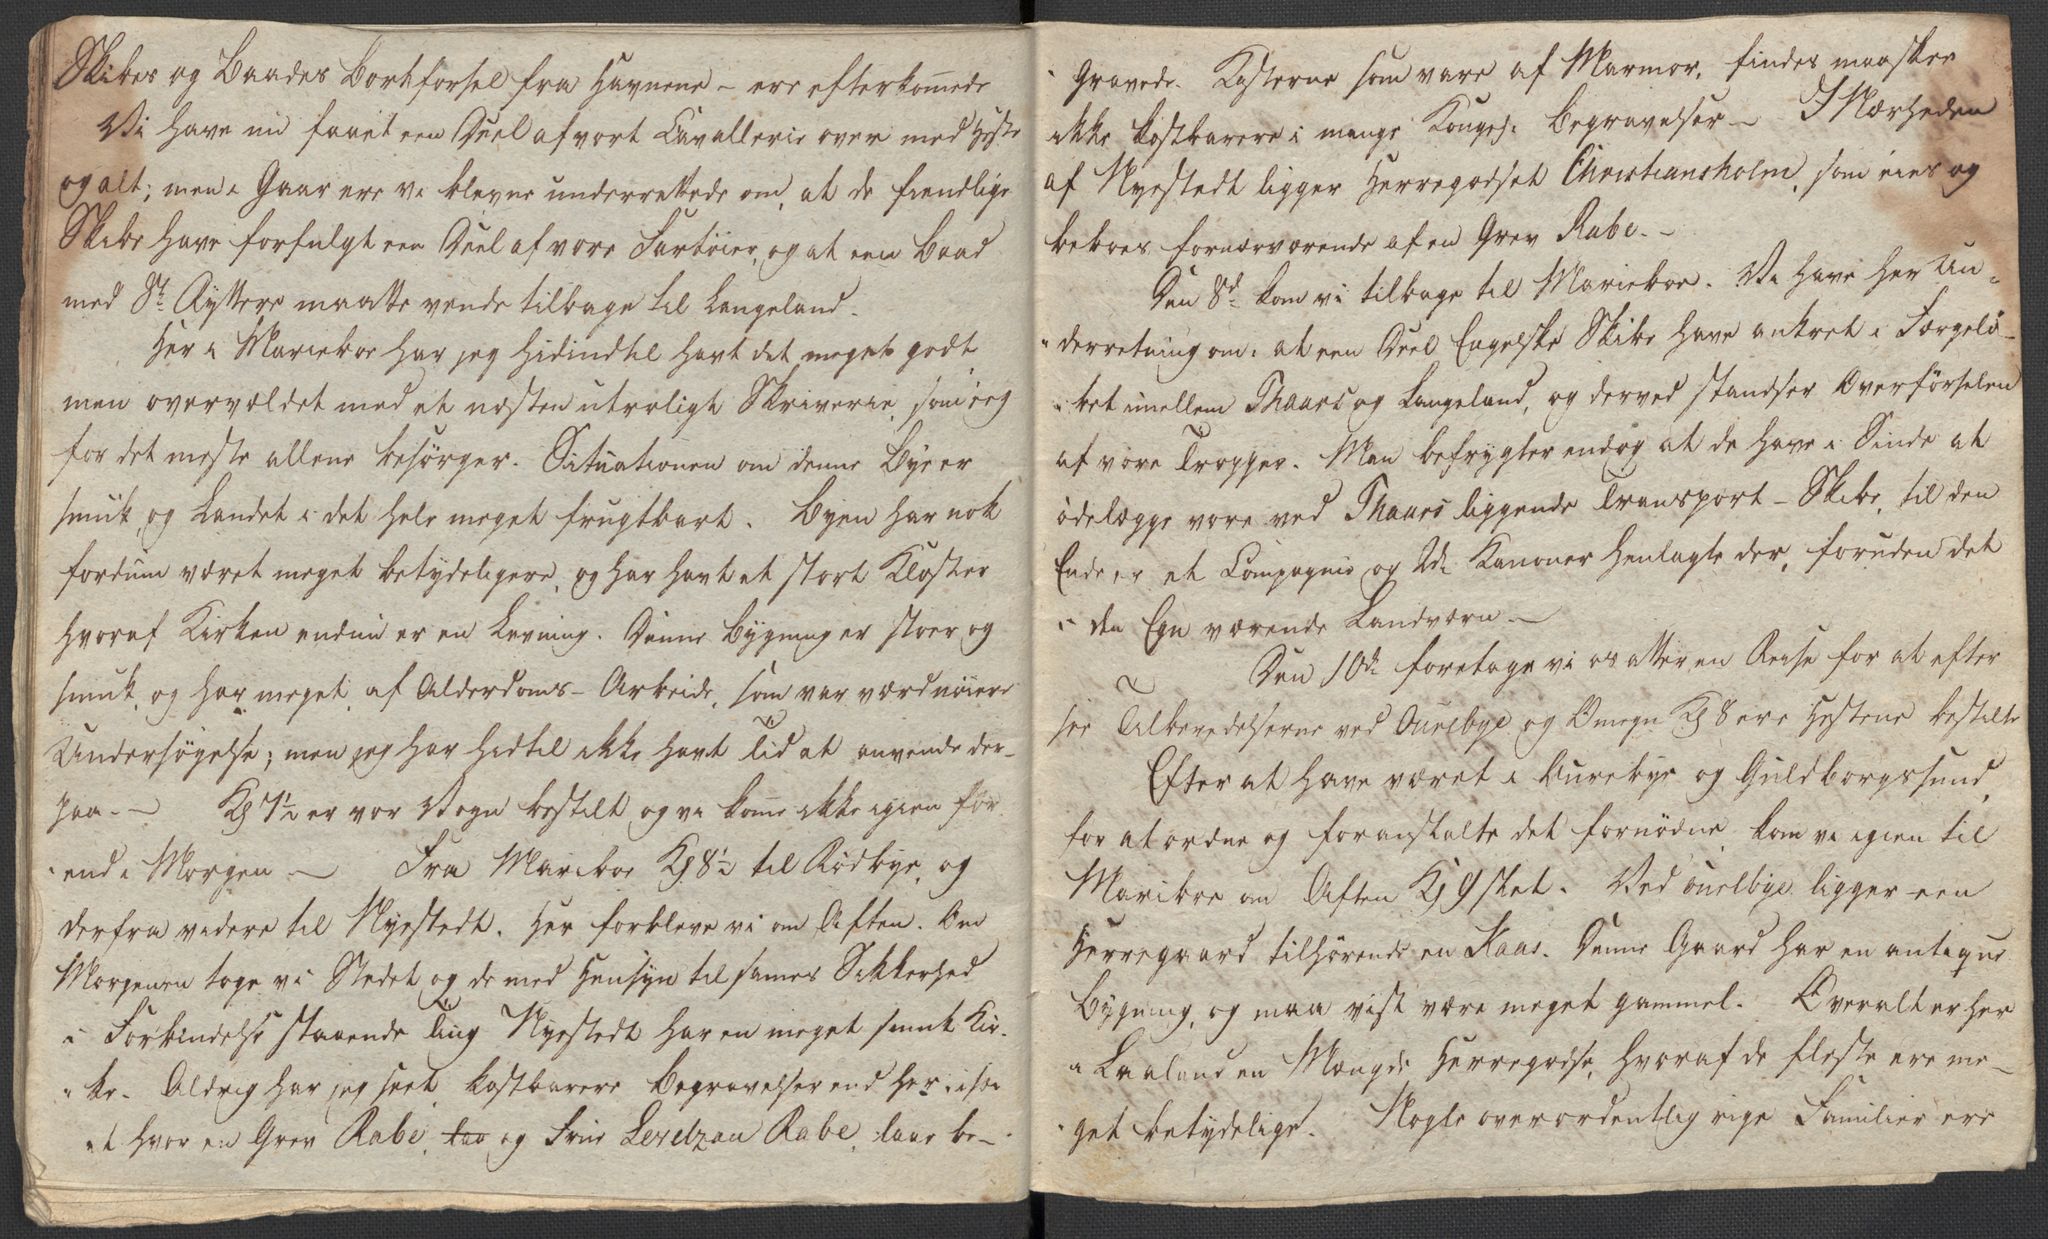 Skibes og Baades Bortførsel fra Havnene - ere efterkom̅ede
Vi have nu faaet een Deel af vort Cavallerie over med Heste
og alt; men i Gaar ere vi blevne underrettede om, at de fiendlige
Skibe have forfulgt een Deel af vore Fartöier, og at een Baad
med St. Ryttere maatte vende tilbage til Langeland.
Her i Marieboe har jeg hidindtil havt det meget godt,
men overvældet med et næsten utroligt Skriverie, som jeg
for det meste allene besörger. Situationen om denne Bye er
smuk, og Landet i det hele meget frugtbart. Byen har nok
fordum været meget betydeligere, og har havt et stort Kloster
hvoraf Kirken endnu er en Levning. Denne Bygning er stoer og
smuk, og har meget af Alderdoms-Arbeide, som var værd nöiere
Undersögelse; men jeg har hidtil ikke havt Tid at anvende der-
paa. - Kl 7½ er vor Vogn bestilt og vi kom̅e ikke igien for
end i Morgen - Fra Mariboe Kl. 8½ til Rödbye, og
derfra videre til Nyestedt. Her forbleve vi om Aften. Om
Morgenen toge vi Stedet og de med Hensyn til sammes Sikkerhed
i Forbindelse staaende Ting Nyestedt har en meget smuk Kir-
ke. Aldrig har jeg seet kostbarere Begravelser end her, især
et hvor en Grev Rabe, og Frue Levetzau Rabe, laae be-
gravede. Kisterne som vare af Marmor, findes maaskee
ikke kostbarere i mange Kongel. Begravelser - I Nærheden
af Nyestedt ligger Herregodset Christiansholm, som eies og
beboes fornærværende af en Grev Rabe. -
Den 8de kom vi tilbage til Marieboe. Vi have her Un-
derretning om: at een Deel Engelske Skibe have ankret i Færgelö-
bet imellem Thaars og Langeland, og derved standser Overförselen
af vore Tropper. Man befrygter endog at de have i Sinde at
ödelægge vore ved Thaars liggende Transport-Skibe, til den
Ende er et Compagnie og 2de Kanoner henlagte der, foruden det
i den Egn værende Landværn -
Den 10de foretage vi os atter en Reise for at efter
see Tilberedelserne ved Ourebye og Omegn Kl 8 ere Hestene bestilte
Efter at have været i Ourebye og Guldborgssund,
for at ordne og foranstalte det fornödne, kom vi igien til
Mariboe om Aften Kl 9 slet. Ved Ourebye ligger een
Herregaard tilhörende en Kaas. Denne Gaard har en antique
Bygning, og maa vist være meget gammel. Overalt er her
i Laaland en Mængde Herregodse, hvoraf de fleste ere me-
get betydelige. Nogle overordentlig rige Familier ere